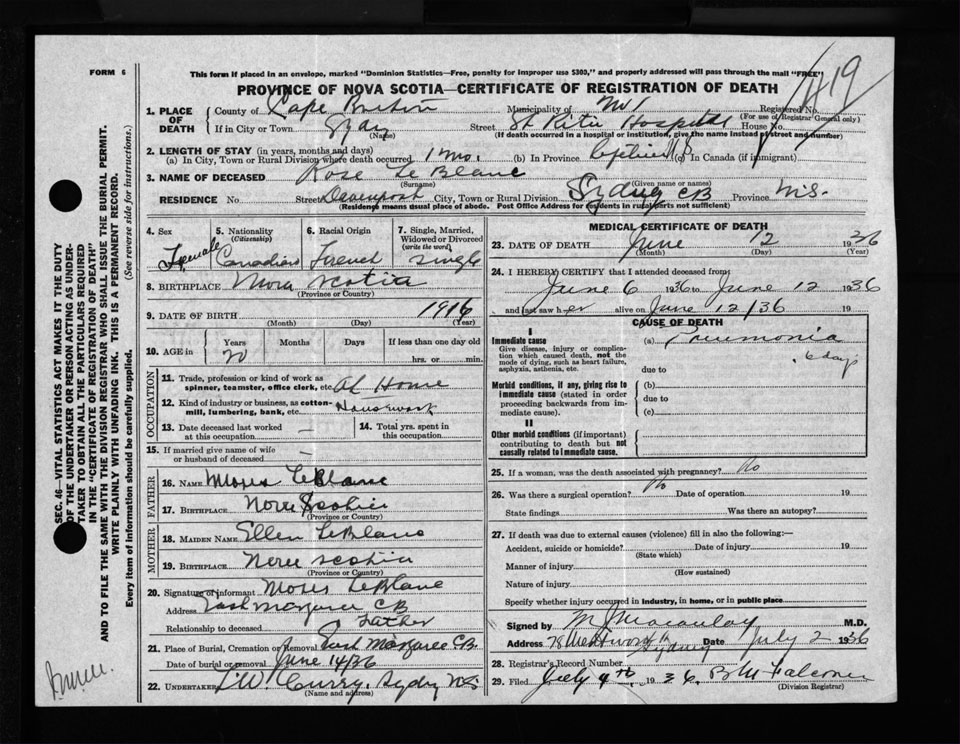 FORM 6
This form if placed in an envelope, marked "Dominion Statistics—Free, penalty for improper use $300," and properly addressed will pass through the mail "FREE"
PROVINCE OF NOVA SCOTIA—CERTIFICATE OF REGISTRATION OF DEATH
419
1. PLACE OF DEATH
County of Cape Breton Municipality of Registered No.
(For use of Registrar General only)
If in City or Town Street St Rita Hospital House No.
(Name) (If death occurred in a hospital or institution, give the name instead of street and number)
2. LENGTH OF STAY (in years, months and days)
(a) In City, Town or Rural Division where death occurred 1 mo. (b) In Province (c) In Canada (if immigrant)
3. NAME OF DECEASED Rose Le Blanc
(Surname) (Given name or names)
RESIDENCE No. Street City, Town or Rural Division Sydney CB Province N.S.
(Residence means usual place of abode. Post Office Address for residents in rural parts not sufficient)
4. Sex Female
5. Nationality (Citizenship) Canadian
6. Racial Origin French
7. Single, Married, Widowed or Divorced (write the word) single
8. BIRTHPLACE Nova Scotia
(Province or Country)
9. DATE OF BIRTH 1916
(Month) (Day) (Year)
10. AGE in Years Months Days If less than one day old
20 hrs. or min.
OCCUPATION
11. Trade, profession or kind of work as spinner, teamster, office clerk, etc. At Home
12. Kind of industry or business, as cotton-mill, lumbering, bank, etc. Housework
13. Date deceased last worked at this occupation —
14. Total yrs. spent in this occupation
15. If married give name of wife or husband of deceased —
FATHER
16. NAME Moses LeBlanc
17. BIRTHPLACE Nova Scotia
(Province or Country)
MOTHER
18. MAIDEN NAME Ellen LeBlanc
19. BIRTHPLACE Nova Scotia
(Province or Country)
20. Signature of informant Moses LeBlanc
Address East Margaree CB
Relationship to deceased Father
21. Place of Burial, Cremation or Removal East Margaree CB.
Date of burial or removal June 14/36
22. UNDERTAKER T.W. Curry, Sydney N.S
(Name and address)
MEDICAL CERTIFICATE OF DEATH
23. DATE OF DEATH June 12 1936
(Month) (Day) (Year)
24. I HEREBY CERTIFY that I attended deceased from:
June 6 1936 to June 12 1936
and last saw her alive on June 12/36 19
CAUSE OF DEATH
I
Immediate cause
Give disease, injury or complication which caused death, not the mode of dying, such as heart failure, asphyxia, asthenia, etc.
(a) Pneumonia
6 days
due to
Morbid conditions, if any, giving rise to immediate cause (stated in order proceeding backwards from immediate cause).
(b)
due to
(c)
II
Other morbid conditions (if important) contributing to death but not causally related to immediate cause.
25. If a woman, was the death associated with pregnancy? No
26. Was there a surgical operation? No Date of operation 19
State findings Was there an autopsy?
27. If death was due to external causes (violence) fill in also the following:—
Accident, suicide or homicide? Date of injury 19
(State which)
Manner of injury
(How sustained)
Nature of injury
Specify whether injury occurred in industry, in home, or in public place
Signed by M J Macaulay M.D.
Address 78 Wentworth Sydney Date July 2 1936
28. Registrar's Record Number
29. Filed July 4th. 1936.
(Division Registrar)
SEC. 46—VITAL STATISTICS ACT MAKES IT THE DUTY
OF THE UNDERTAKER OR PERSON ACTING AS UNDER-
TAKER TO OBTAIN ALL THE PARTICULARS REQUIRED
IN THE "CERTIFICATE OF REGISTRATION OF DEATH"
AND TO FILE THE SAME WITH THE DIVISION REGISTRAR WHO SHALL ISSUE THE BURIAL PERMIT.
WRITE PLAINLY WITH UNFADING INK. THIS IS A PERMANENT RECORD.
Every item of information should be carefully supplied. (See reverse side for instructions.)